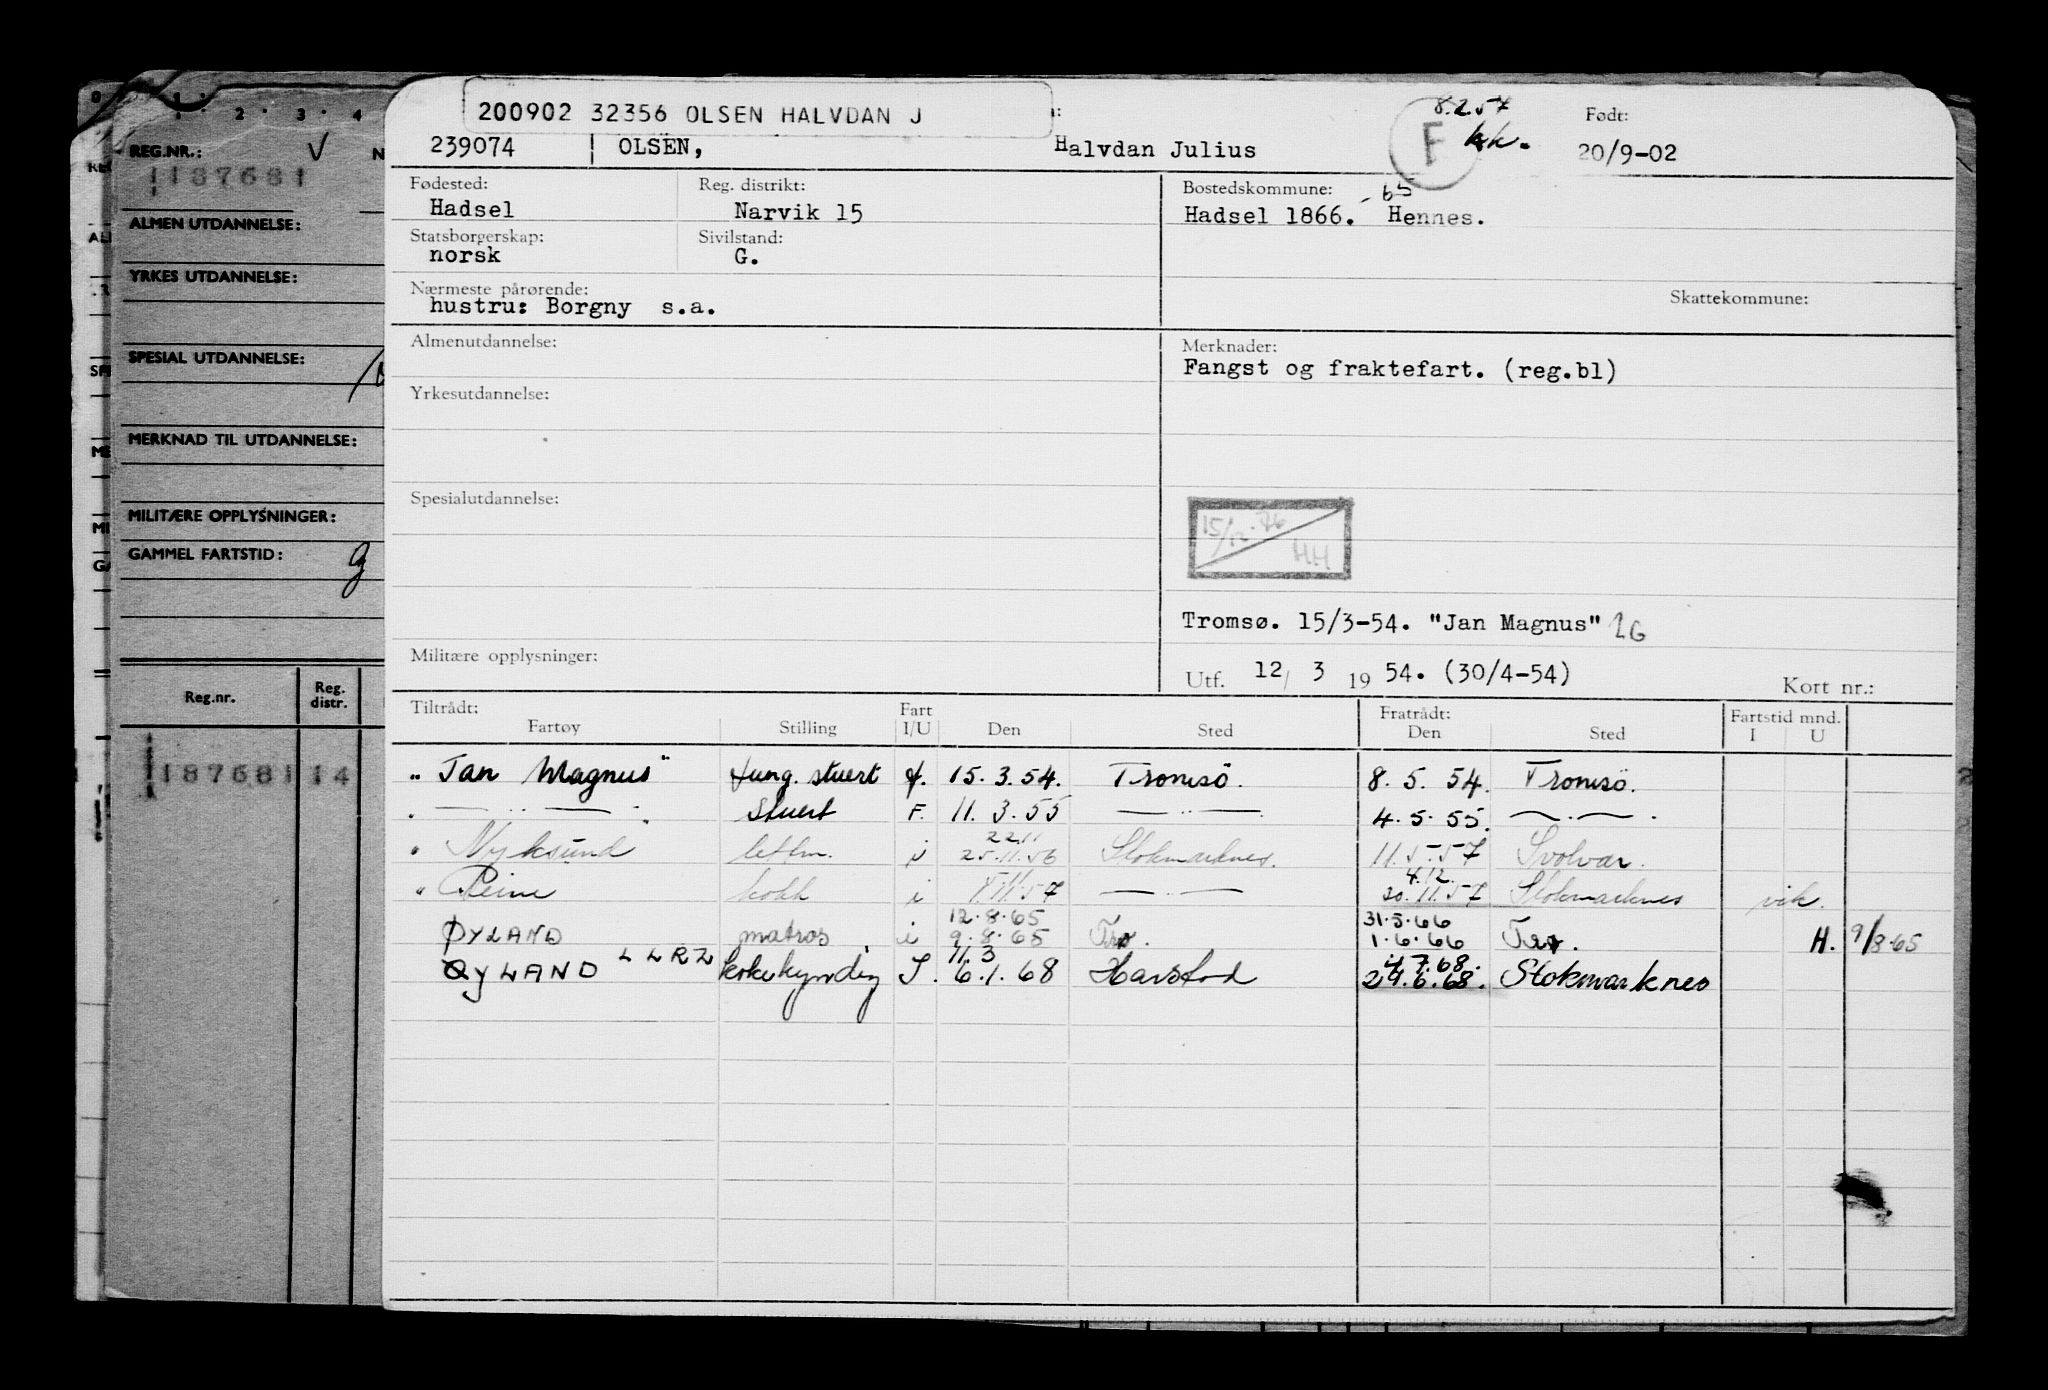 200902 32356 OLSEN HALVDAN J
239074 OLSEN, Halvdan Julius
F
8.2.57
kk.
Født:
20/9-02
Fødested:
Hadsel
Reg. distrikt:
Narvik 15
Bostedskommune: -65
Hadsel 1866. Hennes.
Statsborgerskap:
norsk
Sivilstand:
G.
Nærmeste pårørende:
hustru: Borgny s.a.
Skattekommune:
Almenutdannelse:
Merknader:
Fangst og fraktefart. (reg.bl)
Yrkesutdannelse:
Spesialutdannelse:
15/12.76
HH
Tromsø. 15/3-54. "Jan Magnus"
Militære opplysninger:
Utf. 12/ 3 19 54. (30/4-54)
Kort nr.:
Tiltrådt: Fart Fratrådt: Fartstid mnd.
Fartøy Stilling I/U Den Sted Den Sted I U
"Jan Magnus" fung. stuert f. 15.3.54. Tromsö. 8.5.54. Tromsö.
" — " — Stuert F. 11.3.55 — " — 4.5.55. — " — .
22.11
" Nyksund lettm. i 25.11.56 Stokmarknes. 11.5.57 Svolvær.
4.12.
" Reine kokk i 1.11.57 — " — 20.11.57 Stokmarknes vik.
12.8.65 31.5.66
ØYLAND matros i 9.8.65 Trø. 1.6.66 H. 9/8.65
11.3 4.7.68.
ØYLAND LLRZ kokekyndig I. 6.1.68 Harstad 29.6.68. Stokmarknes
0 1 2 3 4
REG.NR.: V
187681
ALMEN UTDANNELSE:
YRKES UTDANNELSE:
SPESIAL UTDANNELSE:
MERKNAD TIL UTDANNELSE:
MILITÆRE OPPLYSNINGER:
GAMMEL FARTSTID: g
Reg.nr. Reg. distr.
187681 14